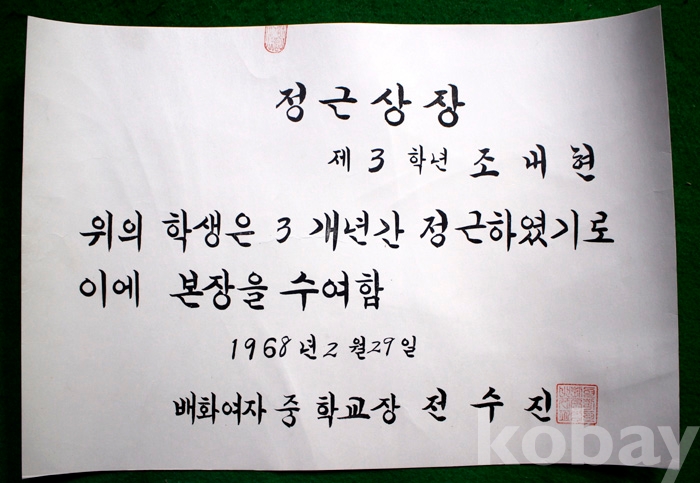 정근상장
제 3 학년 조내현
위의 학생은 3 개년간 정근하였기로
이에 본장을 수여함
1968년 2 월 29일
배화여자 중 학교장 전 수 진
kobay